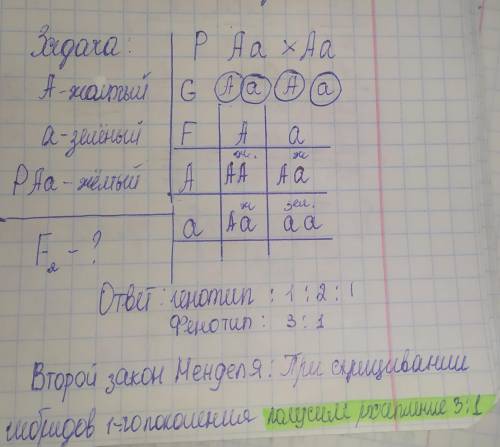 Задача: Р Аа × Аа
А-жолтый G А а А а
а-зелёный F А а
Р Аа - жёлтый А ж. АА ж Аа
а ж Аа зел. аа
F₂ - ?
Ответ: генотип : 1 : 2 : 1
Фенотип : 3 : 1
Второй закон Менделя: При скрищивании
гибридов 1-го поколения получим расщепление 3:1